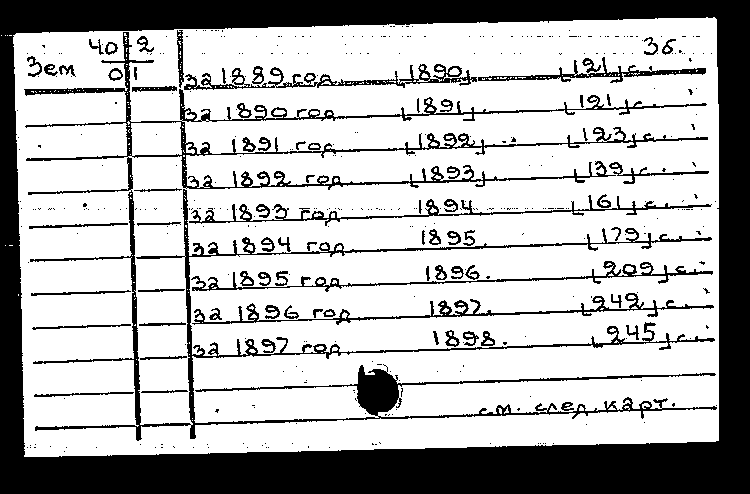 40-2 3б.
Зем 01 за 1889 год. [1890] [121]с.
за 1890 год [1891]. [121]с.
за 1891 год [1892]. [123]с.
за 1892 год. [1893]. [139]с.
за 1893 год 1894. [161]с.
за 1894 год. 1895. [179]с.
за 1895 год 1896. [209]с.
за 1896 год 1897. [242]с.
за 1897 год. 1898. [245]с.
см. след. карт.